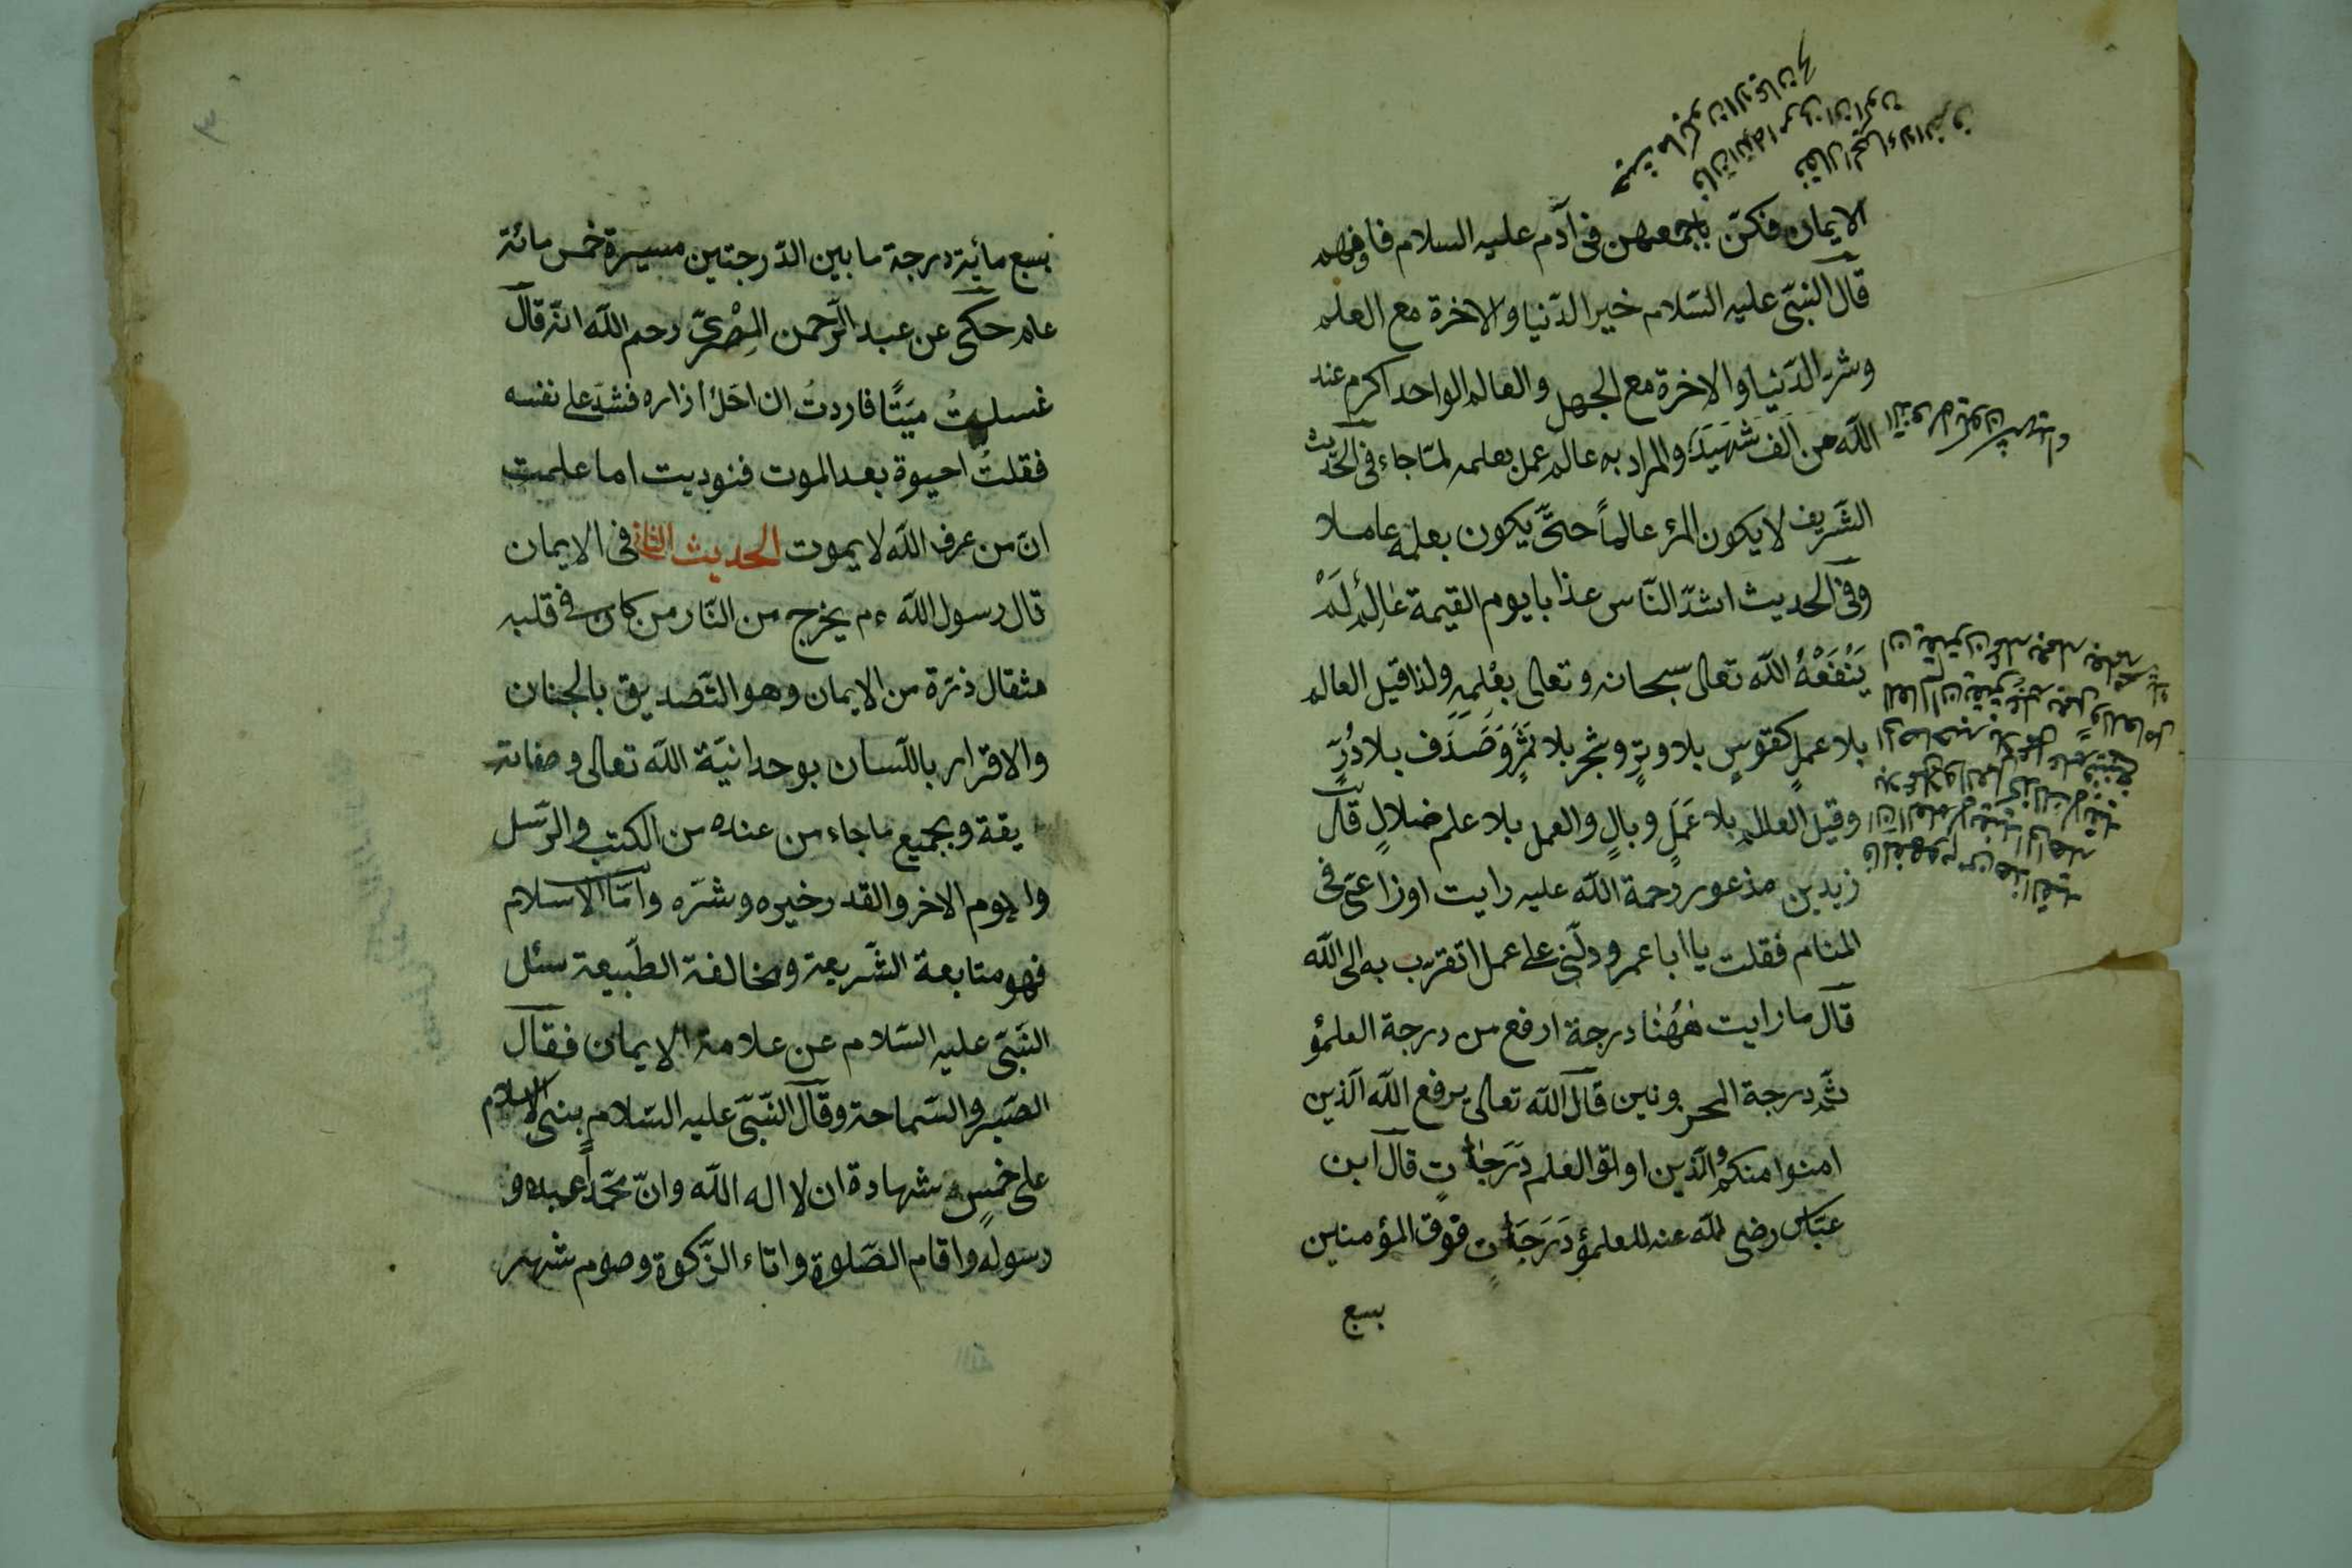 الايمان فكنّ باجمعهن فى آدم عليه السلام فافهم
قال النبىّ عليه السّلام خير الدّنيا والاخرة مع العلم
وشر الدّنيا والاخرة مع الجهل والعالم الواحد اكرم عند
اللّه من الف شَهيَدٍ والمراد به عالم عمل بعلمه لمّا جاء فى الحديث
الشّريف لا يكون المرٔ عالماً حتىّ يكون بعلمه عاملا
وفى الحديث اشدّ النّاس عذابا يوم القيمة عٰالِمٌ لَمْ
يَنْفَعْهُ اللّه تعالى سبحانه وتعالى بِعْلِمِهِ ولذا قيل العالم
بلا عملٍ كقوسٍ بلا وترٍ وشجرٍ بلا ثمَرٍ وَصَدَف بلا دُرٍّ
وقيل العلم بلا عَمَلٍ وبالٍ والعمل بلا علم ضلالٍ قال
زيد بن مذعور رحمة اللّه عليه رايت اوزاعىّ فى
المنام فقلت يا ابا عمرو دلّنى على عمل اتقرب به الى اللّه
قال ما رايت هٰهُنٰا درجة ارفع من درجة العلمؤ
ثمّ درجة المحزونين قال اللّه تعالى يرفع اللّه الّذين
امنوا منكم والّذين اوتوا العلم دَرَجٰاتٍ قال ابن
عبّاس رضى اللّه عنه للعلمؤ دَرَجَاتٍ فوق المؤمنين
بسبع
بسبع مائة درجة ما بين الدّرجتين مسيرة خمس مائة
عام حكى عن عبد الرّحمن المِصْرِىّ رحم اللّه انّه قال
غسلتُ ميّتًا فاردتُ ان احَلّ ازاره فشدّ على نفسه
فقلتُ احيوة بعد الموت فنوديت اما علمت
انّ من عرف اللّه لا يموت الحديث الثانى فى الايمان
قال رسول اللّه ءم يخرج من النّار من كان فى قلبه
مثقال ذرّة من الايمان وهو التّصديق بالجنان
والاقرار باللّسان بوحدانيّة اللّه تعالى وصفاته
يقة وبجميع ماجاء من عنده من الكتب والرّسل
واليوم الاخر والقدر خيره وشرّه وامّا الاسلام
فهو متابعة الشّريعة ومخالفة الطّبيعة سئل
النّبىّ عليه السّلام عن علامة الايمان فقال
الصّبر والسّماحة وقال النّبىّ عليه السّلام بنى الاسلام
على خمسٍ شهادة ان لا اله اللّه وانّ محمّداً عبده و
رسوله واقام الصّلوة واتاء الزّكوة وصوم شهر